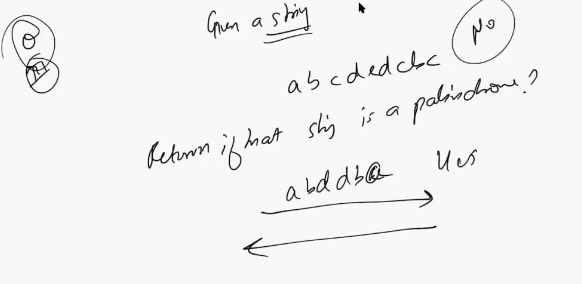 Given a string
No
abcdedcbc
Return if that string is a palindrome?
abddba Yes